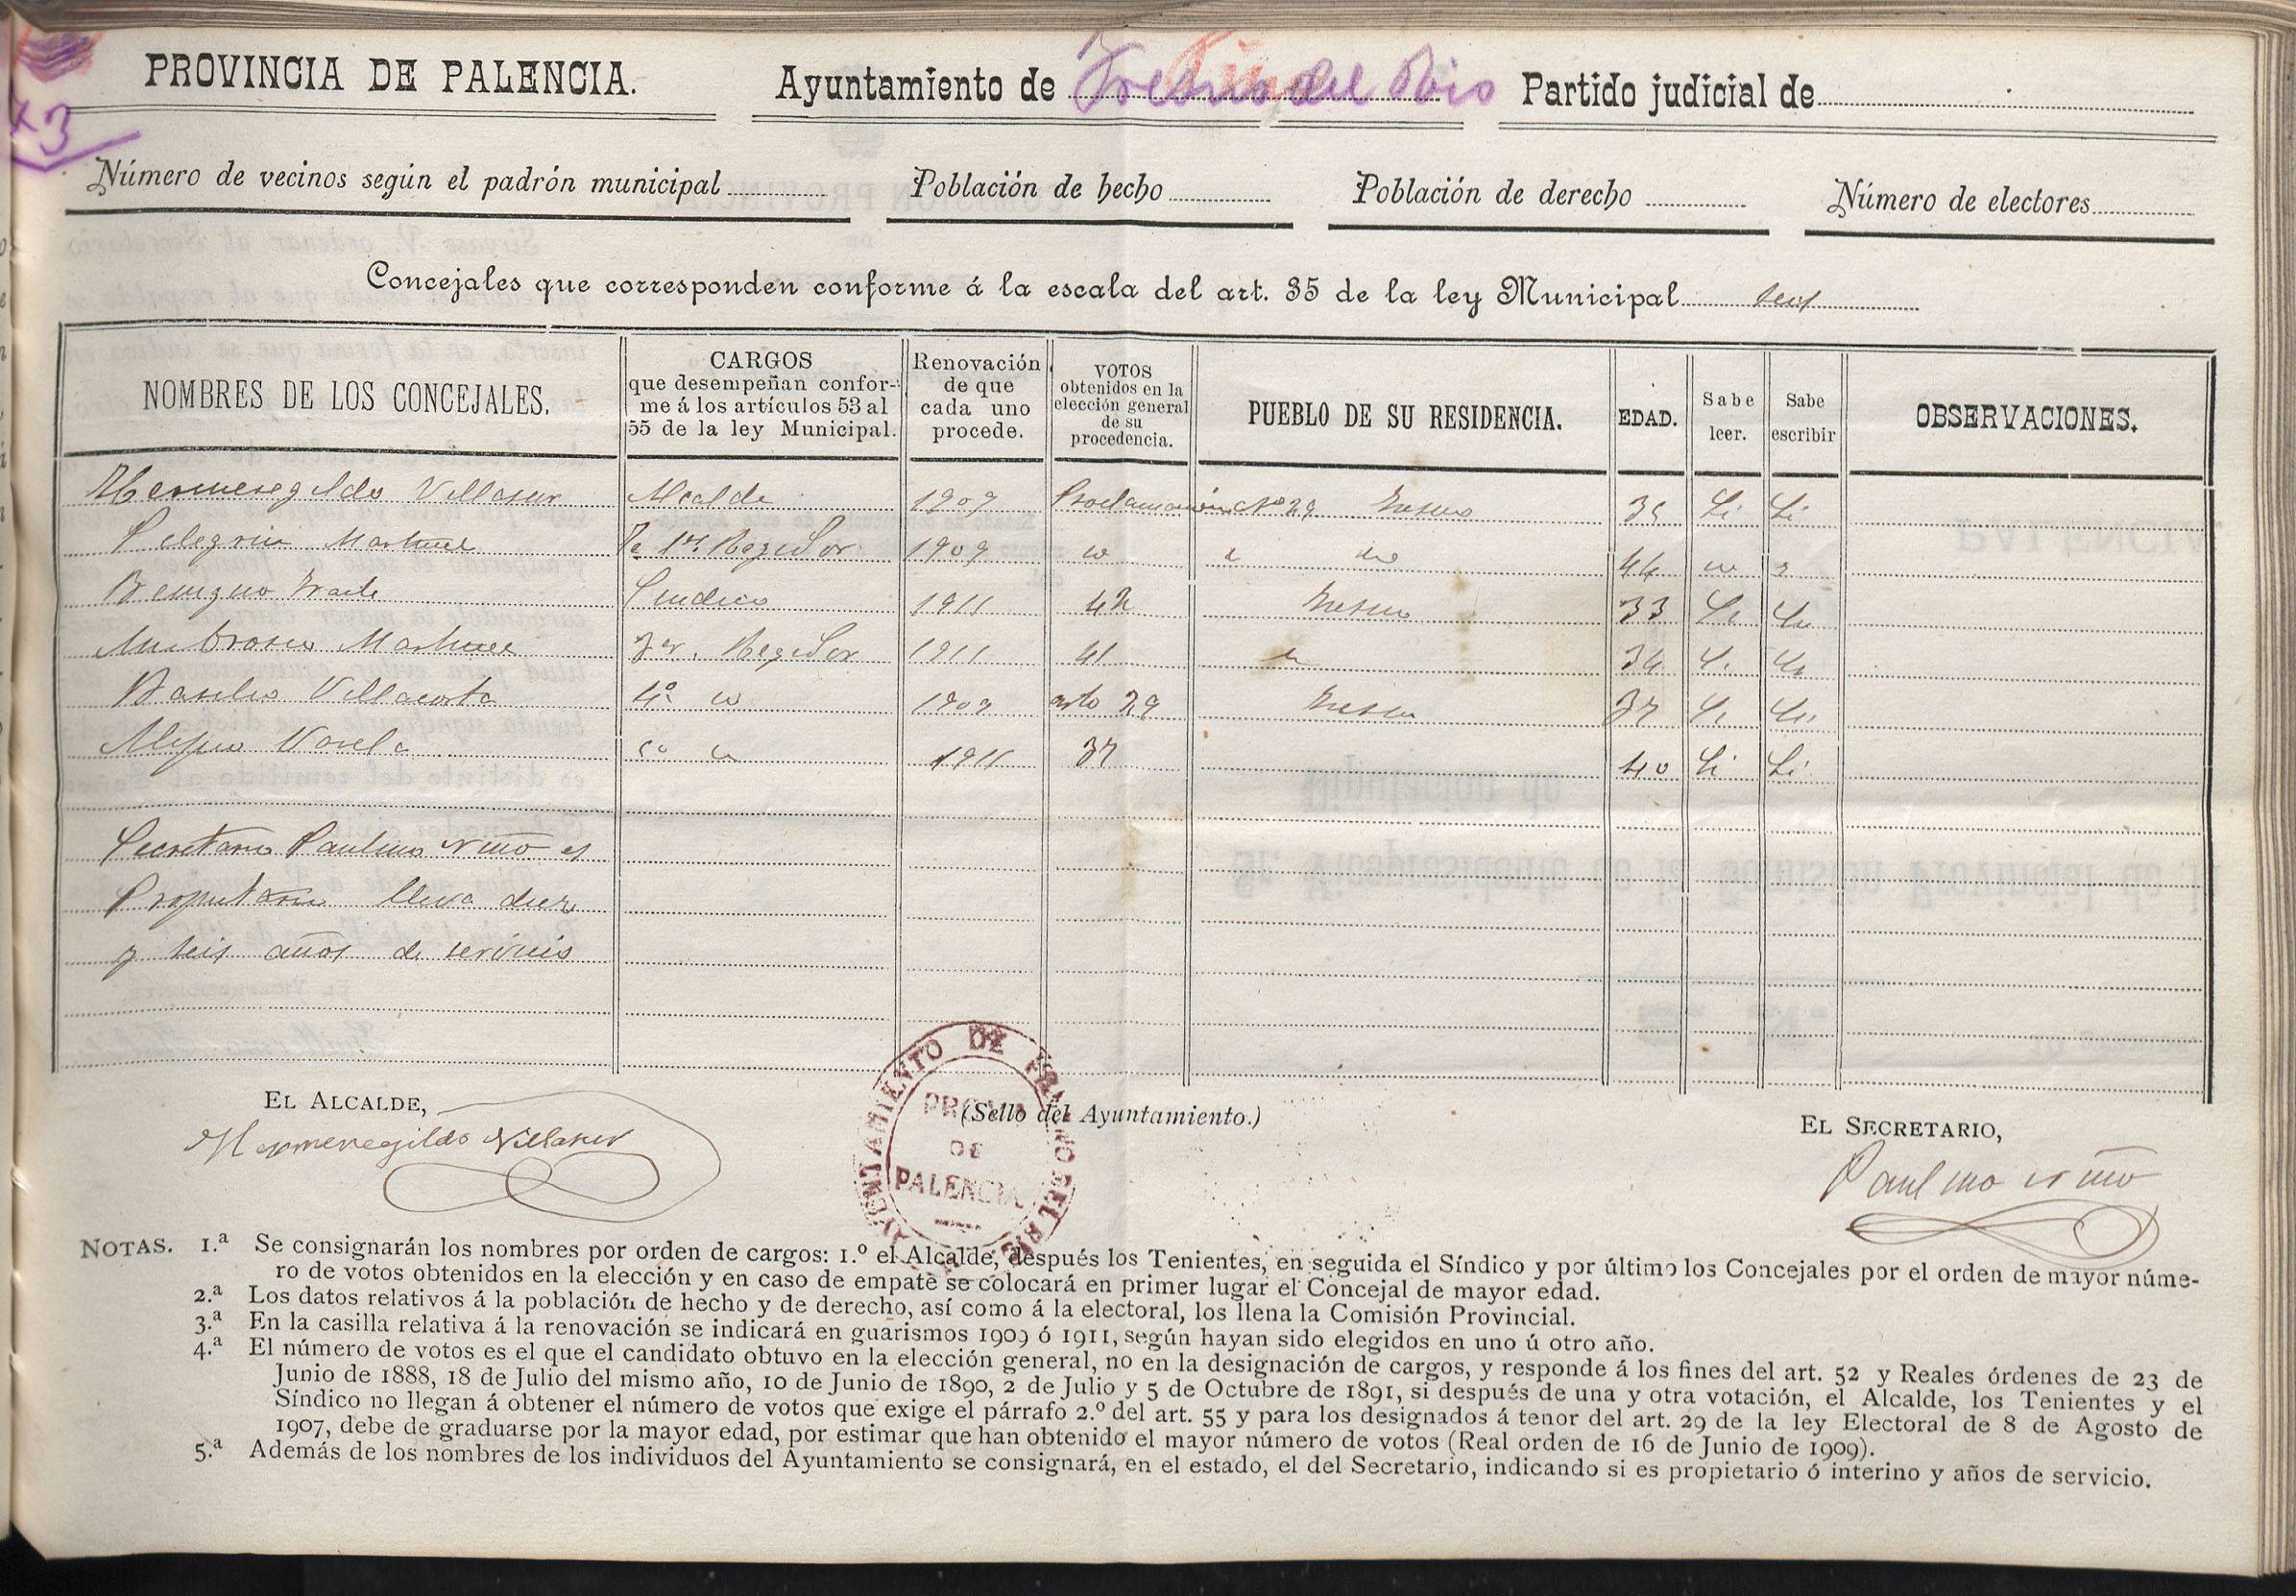 PROVINCIA DE PALENCIA. Ayuntamiento de Fresno del Rio Partido judicial de
x3
Número de vecinos según el padrón municipal Población de hecho Población de derecho Número de electores
Concejales que corresponden conforme á la escala del art. 35 de la ley Municipal seis
NOMBRES DE LOS CONCEJALES.
CARGOS
que desempeñan confor-
me á los artículos 53 al
55 de la ley Municipal.
Renovación
de que
cada uno
procede.
VOTOS
obtenidos en la
elección general
de su
procedencia.
PUEBLO DE SU RESIDENCIA.
EDAD.
Sabe
leer.
Sabe
escribir
OBSERVACIONES.
Hermenegildo Villasur Alcalde 1909 Proclamación Art 29 Fresno 35 Si Si
Pelegrin Martinez Te 1er. Regidor 1909 44
Benigno Fraile Sindico 1911 42 Fresno 33 Si Si
Ambrosio Martinez 3er. Regidor 1911 41 34 Si Si
Basilio Villacorta 4º 1909 arto 29 Fresno 37 Si Si
Varela 5º 1911 37 40 Si Si
Secretario Paulino Niño es
Propietario lleva diez
y seis años de servicio
EL ALCALDE,
Hermenegildo Villasur
(Sello del Ayuntamiento.)
AYUNTAMIENTO DE FRESNO DEL RIO
PROVA
DE
PALENCIA
EL SECRETARIO,
Paulino Niño
NOTAS. 1.ª Se consignarán los nombres por orden de cargos: 1.º el Alcalde, después los Tenientes, en seguida el Síndico y por último los Concejales por el orden de mayor núme-
ro de votos obtenidos en la elección y en caso de empate se colocará en primer lugar el Concejal de mayor edad.
2.ª Los datos relativos á la población de hecho y de derecho, así como á la electoral, los llena la Comisión Provincial.
3.ª En la casilla relativa á la renovación se indicará en guarismos 1909 ó 1911, según hayan sido elegidos en uno ú otro año.
4.ª El número de votos es el que el candidato obtuvo en la elección general, no en la designación de cargos, y responde á los fines del art. 52 y Reales órdenes de 23 de
Junio de 1888, 18 de Julio del mismo año, 10 de Junio de 1890, 2 de Julio y 5 de Octubre de 1891, si después de una y otra votación, el Alcalde, los Tenientes y el
Síndico no llegan á obtener el número de votos que exige el párrafo 2.º del art. 55 y para los designados á tenor del art. 29 de la ley Electoral de 8 de Agosto de
1907, debe de graduarse por la mayor edad, por estimar que han obtenido el mayor número de votos (Real orden de 16 de Junio de 1909).
5.ª Además de los nombres de los individuos del Ayuntamiento se consignará, en el estado, el del Secretario, indicando si es propietario ó interino y años de servicio.